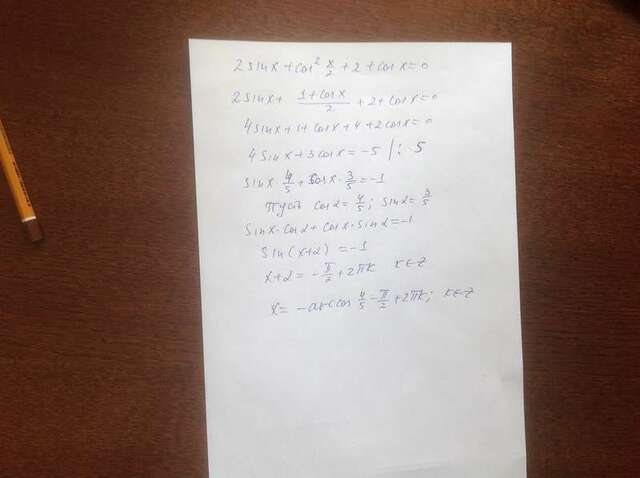 2 sin x + cos² x/2 + 2 + cos x = 0
2 sin x + (1 + cos x)/2 + 2 + cos x = 0
4 sin x + 1 + cos x + 4 + 2 cos x = 0
4 sin x + 3 cos x = -5 |: 5
sin x · 4/5 + cos x · 3/5 = -1
Пусть cos α = 4/5; sin α = 3/5
sin x · cos α + cos x · sin α = -1
sin (x + α) = -1
x + α = -π/2 + 2πk k ∈ Z
x = -arccos 4/5 - π/2 + 2πk; k ∈ Z